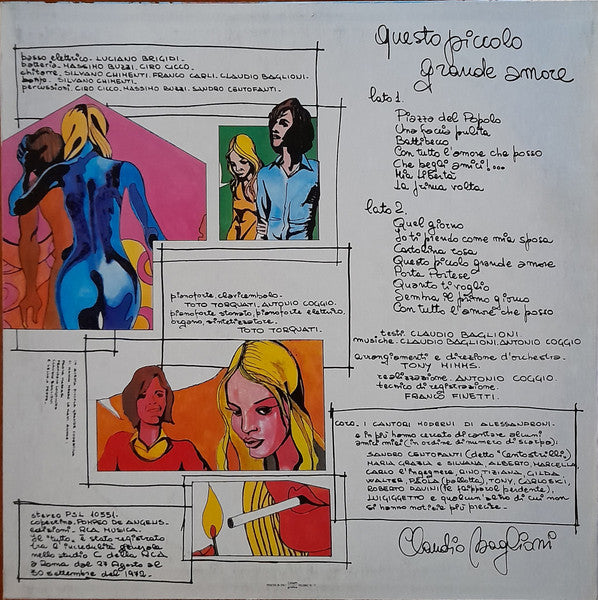 basso elettrico - LUCIANO BRIGIDI -
batteria - MASSIMO BUZZI, CIRO CICCO.
chitarre, SILVANO CHIMENTI, FRANCO CARLI, CLAUDIO BAGLIONI.
banjo - SILVANO CHIMENTI.
percussioni, CIRO CICCO, MASSIMO BUZZI, SANDRO CENTOFANTI.
Questo piccolo
grande amore
lato 1.
Piazza del Popolo
Una faccia pulita
Battibecco
Con tutto l'amore che posso
Che begli amici!...
Mia libertà
La prima volta
lato 2.
Quel giorno
Io ti prendo come mia sposa
Cartolina rosa
Questo piccolo grande amore
Porta Portese
Quanto ti voglio
Sembra il primo giorno
Con tutto l'amore che posso
testi - CLAUDIO BAGLIONI.
musiche - CLAUDIO BAGLIONI, ANTONIO COGGIO
arrangiamenti e direzione d'orchestra -
TONY MIMMS.
realizzazione - ANTONIO COGGIO
tecnico di registrazione
FRANCO FINETTI.
pianoforte, clavicembalo -
TOTO TORQUATI, ANTONIO COGGIO.
pianoforte stonato, pianoforte elettrico,
organo, sintetizzatore -
TOTO TORQUATI.
coro - I CANTORI MODERNI DI ALESSANDRONI -
e in più hanno cercato di cantare alcuni
amici miei (in ordine di numero di scarpa).
SANDRO CENTOFANTI (detto "Centostrilli")
MARIA GRAZIA E SILVANA, ALBERTO, MARCELLA
CARLO l'ingegnere, RINO, TIZIANA, GILDA
WALTER, PAOLA (pallotta), TONY,
ROBERTO DAVINI
LUIGIGGETTO e qualcun'altro di cui non
si hanno notizie più precise -
Claudio Baglioni
stereo PSL 10551.
copertina - POMPEO DE ANGELIS -
edizioni - RCA MUSICA.
Il "tutto" è stato registrato
tra l'incredulità generale
nello studio C della RCA
a Roma dal 27 Agosto al
30 settembre del 1972.